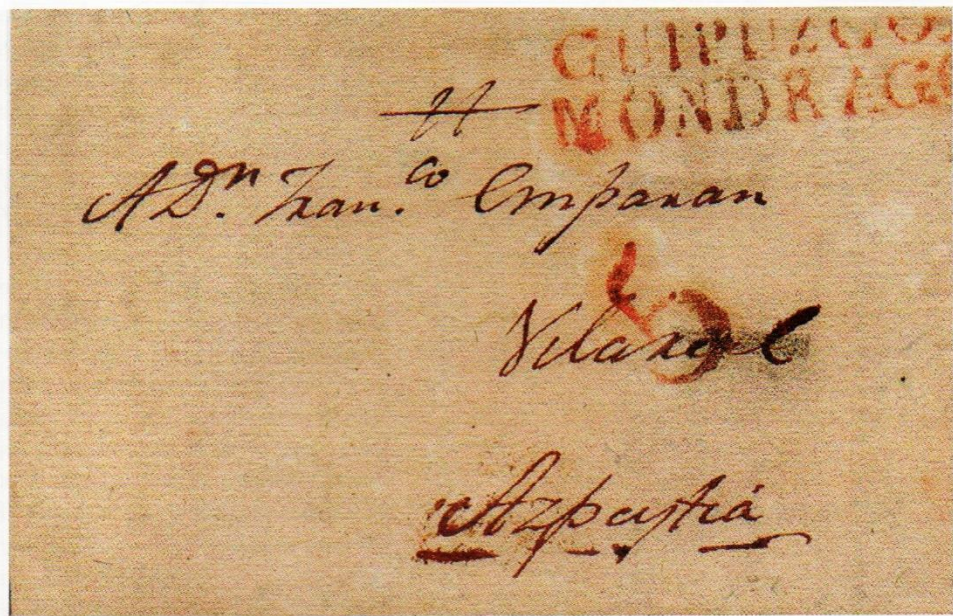 GUIPUZCO
MONDRAGO
A Dn. Fran.co Emparan
Vilareal
Azpeytiá